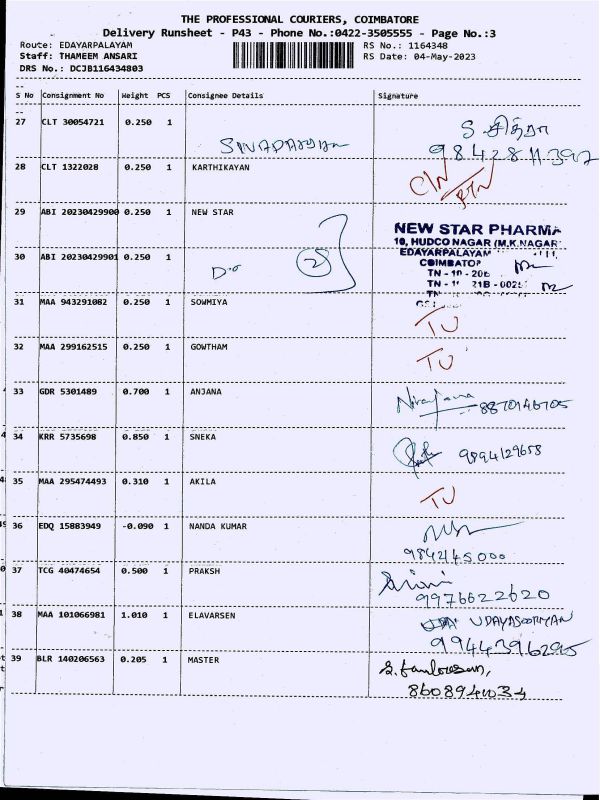 THE PROFESSIONAL COURIERS, COIMBATORE
Delivery Runsheet - P43 - Phone No.:0422-3505555 - Page No.:3
Route: EDAYARPALAYAM RS No.: 1164348
Staff: THAMEEM ANSARI RS Date: 04-May-2023
DRS No.: DCJB116434803
S No Consignment No Weight PCS Consignee Details Signature
27 CLT 30054721 0.250 1 S சித்ரா
9842811397
28 CLT 1322028 0.250 1 KARTHIKAYAN C/N
RTN
29 ABI 20230429900 0.250 1 NEW STAR NEW STAR PHARMA
10, HUDCO NAGAR (M.K.NAGAR
30 ABI 20230429901 0.250 1 EDAYARPALAYAM
Do 2 COIMBATO
TN - 10 - 206
TN - 21B - 002
TN
31 MAA 943291082 0.250 1 SOWMIYA
TU
32 MAA 299162515 0.250 1 GOWTHAM TU
33 GDR 5301489 0.700 1 ANJANA Niranjana 8870146705
34 KRR 5735698 0.850 1 SNEKA 9894129658
35 MAA 295474493 0.310 1 AKILA TU
36 EDQ 15883949 -0.090 1 NANDA KUMAR
9842445000
37 TCG 40474654 0.500 1 PRAKSH
9976622620
38 MAA 101066981 1.010 1 ELAVARSEN UDAYASOORIYAN
9944396295
39 BLR 140206563 0.205 1 MASTER
8608941034